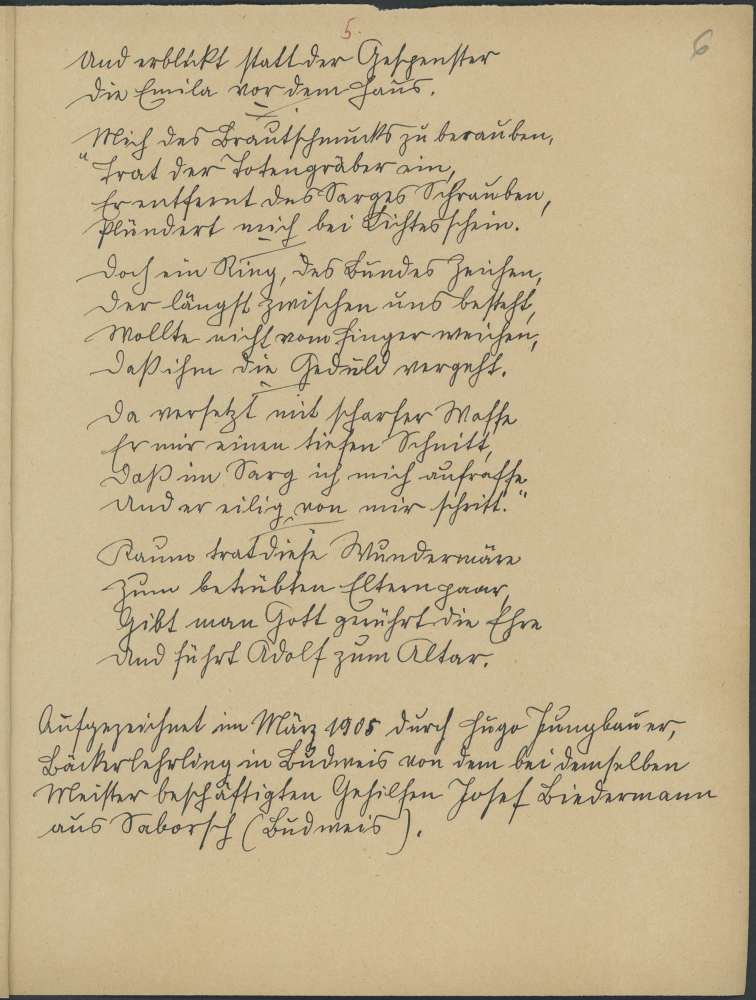 5.
6
Und erblickt statt der Gespenster
Die Emila vor dem Haus.
Mich des Brautschmucks zu berauben,
"Trat der Totengräber ein,
Er entfernt des Sarges Schrauben,
Plündert mich bei Lichtesschein.
Doch ein Ring, des Bundes Zeichen,
Der längst zwischen uns besteht,
Wollte nicht vom Finger weichen,
Daß ihm die Geduld vergeht.
Da versetzt mit scharfer Waffe
Er mir einen tiefen Schnitt,
Daß im Sarg ich mich aufraffe
Und er eilig von mir schritt."
Kaum trat diese Wundermäre
Zum betrübten Elternpaar,
Gibt man Gott gerührt die Ehre
Und führt Adolf zum Altar.
Aufgezeichnet im März 1905 durch Hugo Jungbauer,
Bäckerlehrling in Budweis von dem bei demselben
Meister beschäftigten Gehilfen Josef Biedermann
aus Saborsch (Budweis).